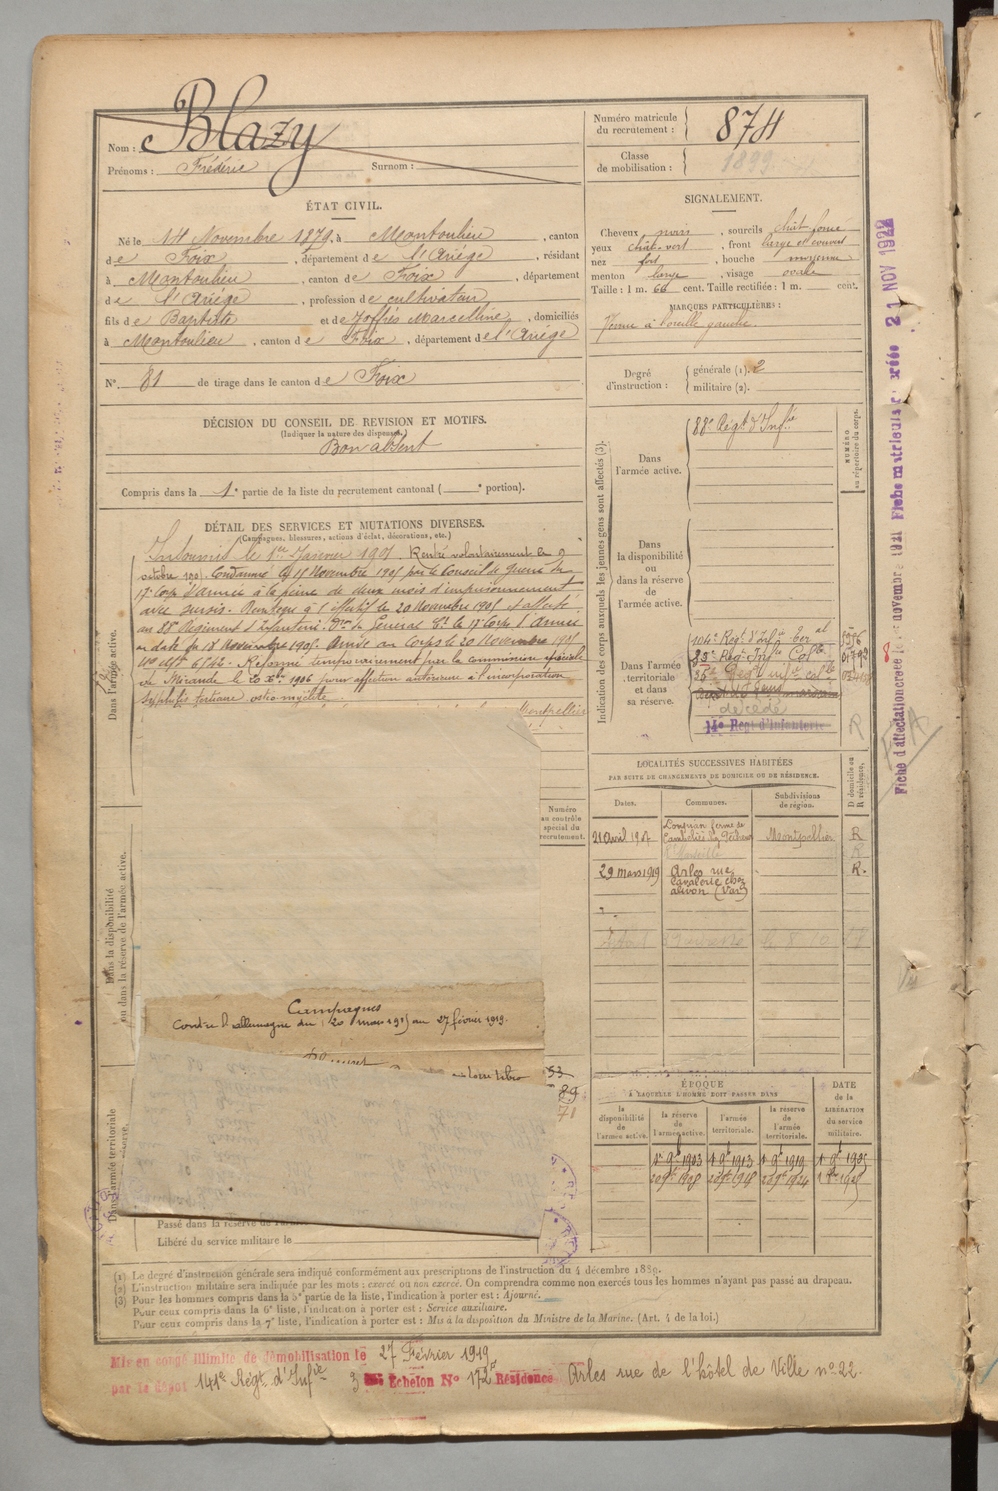 Nom : Blazy
Prénoms : Frédéric Surnom :
Numéro matricule
du recrutement : 874
Classe
de mobilisation : 1899
ÉTAT CIVIL.
Né le 14 Novembre 1879, à Montoulieu, canton
de Foix, département de l'Ariège, résidant
à Montoulieu, canton de Foix, département
de l'Ariège, profession de cultivateur
fils de Baptiste et de Joffrès Marcelline, domiciliés
à Montoulieu, canton de Foix, département de l'Ariège
N° 81 de tirage dans le canton de Foix
DÉCISION DU CONSEIL DE REVISION ET MOTIFS.
(Indiquer la nature des dispenses.)
Bon absent
Compris dans la 1e partie de la liste du recrutement cantonal ( e portion).
DÉTAIL DES SERVICES ET MUTATIONS DIVERSES.
(Campagnes, blessures, actions d'éclat, décorations, etc.)
Insoumis le 1er Janvier 1901. Rentré volontairement le 9
octobre 1905. Condamné le 15 Novembre 1905 par le Conseil de Guerre du
17e Corps d'armée à la peine de deux mois d'emprisonnement
avec sursis. Réintégré à l'effectif le 20 Novembre 1905 et affecté
au 88e Régiment d'Infanterie. Don du Général Ct le 17e Corps d'Armée
en date du 18 Novembre 1905. Arrivé au Corps le 20 Novembre 1905
No Mle 6542. Réformé temporairement par la commission spéciale
de Mirande le 20 Xbre 1906 pour affection antérieure à l'incorporation
syphilis tertiaire ostéo-myélite
Montpellier
Dans l'armée active.
Dans la disponibilité
ou dans la réserve de l'armée active.
Dans l'armée territoriale
Numéro
au contrôle
spécial du
recrutement.
Campagnes
Contre l'allemagne du (20 mars 191) au 27 février 1919.
53
89
71
Passé dans la réserve de l'armée
Libéré du service militaire le
SIGNALEMENT.
Cheveux noirs, sourcils chât. foncé
yeux chât. vert, front large et couvert
nez fort, bouche moyenne
menton large, visage ovale
Taille : 1 m. 66 cent. Taille rectifiée : 1 m. cent.
MARQUES PARTICULIÈRES :
Verrue à l'oreille gauche.
Degré
d'instruction : générale (1). 2
militaire (2).
Indication des corps auxquels les jeunes gens sont affectés (3).
NUMÉRO
au répertoire du corps.
Dans
l'armée active. 88e Régt d'Infie
Dans
la disponibilité
ou
dans la réserve
de
l'armée active.
Dans l'armée
territoriale
et dans
sa réserve.
104e Régt d'Infie Ter al
décédé
14e Régt d'Infanterie
R
LOCALITÉS SUCCESSIVES HABITÉES
PAR SUITE DE CHANGEMENTS DE DOMICILE OU DE RÉSIDENCE.
Dates. Communes. Subdivisions
de région. D domicile ou
R résidence.
21 Avril 1907 Montpellier R
Marseille R
29 mars 1919 Arles rue
cavalerie chez
(Var) R.
ÉPOQUE
À LAQUELLE L'HOMME DOIT PASSER DANS
la
disponibilité
de
l'armée active.
la réserve
de
l'armée active.
l'armée
territoriale.
la réserve
de
l'armée
territoriale.
DATE
de la
LIBÉRATION
du service
militaire.
1er 9bre 1903 1er 9bre 1913 1er 9bre 1919 1er 9bre 1925
20 9bre 1908 20 9bre 1918 20 9bre 1924
Fiche d'affectation créée le novembre 1921 Fiche matricule créée 21 NOV 1922
(1) Le degré d'instruction générale sera indiqué conformément aux prescriptions de l'instruction du 4 décembre 1889.
(2) L'instruction militaire sera indiquée par les mots : exercé ou non exercé. On comprendra comme non exercés tous les hommes n'ayant pas passé au drapeau.
(3) Pour les hommes compris dans la 5e partie de la liste, l'indication à porter est : Ajourné.
Pour ceux compris dans la 6e liste, l'indication à porter est : Service auxiliaire.
Pour ceux compris dans la 7e liste, l'indication à porter est : Mis à la disposition du Ministre de la Marine. (Art. 4 de la loi.)
Mis en congé illimité de démobilisation le 27 Février 1919
par le dépôt 141e Régt. d'Infie 3 Echelon No 172 Résidence Arles rue de l'hôtel de Ville no 22.